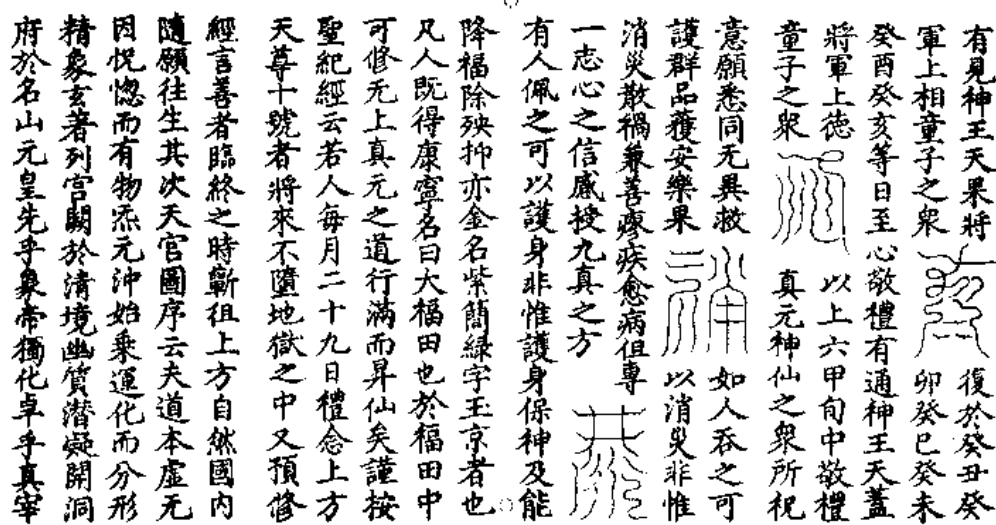 有見神王天果將 復於癸丑癸
軍上相童子之衆 卯癸巳癸未
癸酉癸亥等日至心敬禮有通神王天蓋
將軍上德 以上六甲旬中敬禮
童子之衆 真元神仙之衆所祝
意願悉同无異救 如人吞之可
護群品獲安樂果 以消災非惟
消災散禍兼善瘳疾愈病但專
一志心之信感授九真之方
有人佩之可以護身非惟護身保神及能
降福除殃抑亦金名紫簡緑字玉京者也
凡人既得康寧名曰大福田也於福田中
可修无上真元之道行滿而昇仙矣謹按
聖紀經云若人每月二十九日禮念上方
天尊十號者將來不墮地獄之中又預修
經言善者臨終之時蹔徂上方自然國内
隨願往生其次天官圖序云夫道本虚无
因恍惚而有物炁元沖始乘運化而分形
精象玄著列宫闕於清境幽質潛凝開洞
府於名山元皇先乎象帝獨化卓乎真宰